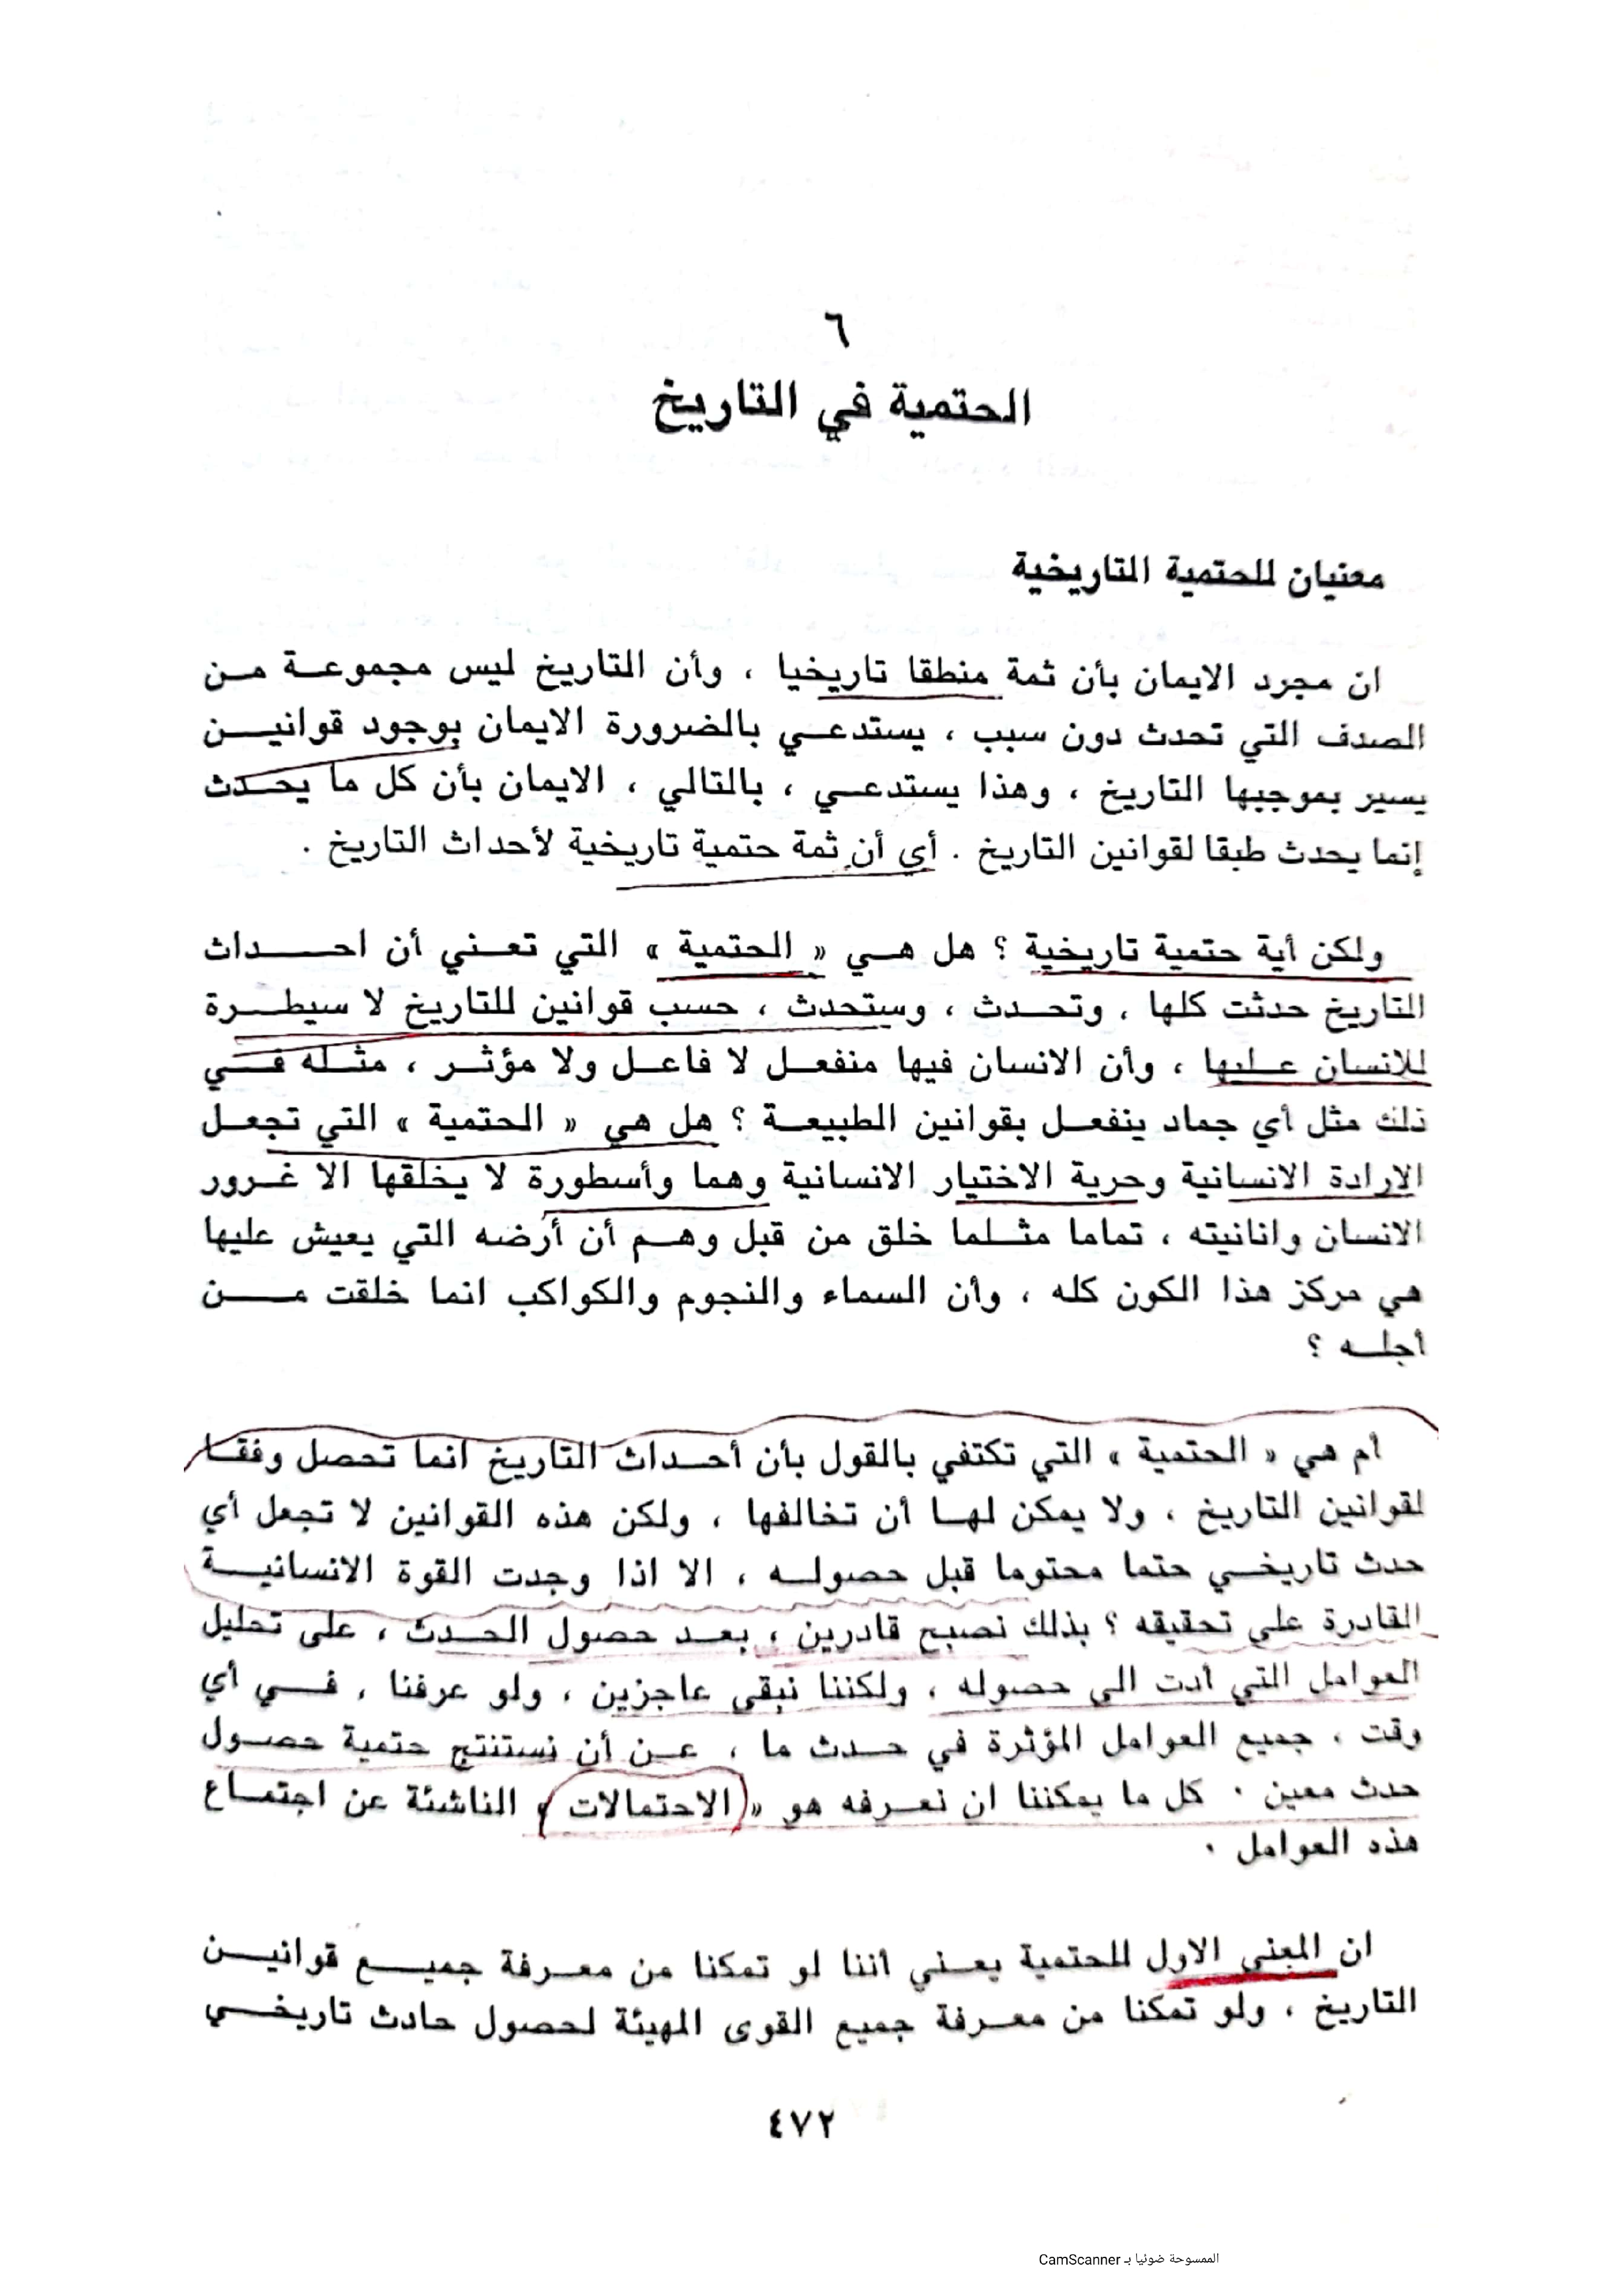 ٦
الحتمية في التاريخ
معنيان للحتمية التاريخية
ان مجرد الايمان بأن ثمة منطقا تاريخيا ، وأن التاريخ ليس مجموعة من
الصدف التي تحدث دون سبب ، يستدعي بالضرورة الايمان بوجود قوانين
يسير بموجبها التاريخ ، وهذا يستدعي ، بالتالي ، الايمان بأن كل ما يحدث
إنما يحدث طبقا لقوانين التاريخ . أي أن ثمة حتمية تاريخية لأحداث التاريخ .
ولكن أية حتمية تاريخية ؟ هل هي « الحتمية » التي تعني أن احداث
التاريخ حدثت كلها ، وتحدث ، وستحدث ، حسب قوانين للتاريخ لا سيطرة
للانسان عليها ، وأن الانسان فيها منفعل لا فاعل ولا مؤثر ، مثله في
ذلك مثل أي جماد ينفعل بقوانين الطبيعة ؟ هل هي « الحتمية » التي تجعل
الارادة الانسانية وحرية الاختيار الانسانية وهما وأسطورة لا يخلقها الا غرور
الانسان وانانيته ، تماما مثلما خلق من قبل وهم أن أرضه التي يعيش عليها
هي مركز هذا الكون كله ، وأن السماء والنجوم والكواكب انما خلقت من
أجله ؟
أم هي « الحتمية » التي تكتفي بالقول بأن أحداث التاريخ انما تحصل وفقا
لقوانين التاريخ ، ولا يمكن لها أن تخالفها ، ولكن هذه القوانين لا تجعل أي
حدث تاريخي حتما محتوما قبل حصوله ، الا اذا وجدت القوة الانسانية
القادرة على تحقيقه ؟ بذلك نصبح قادرين ، بعد حصول الحدث ، على تحليل
العوامل التي أدت الى حصوله ، ولكننا نبقى عاجزين ، ولو عرفنا ، في أي
وقت ، جميع العوامل المؤثرة في حدث ما ، عن أن نستنتج حتمية حصول
حدث معين . كل ما يمكننا ان نعرفه هو « الاحتمالات » الناشئة عن اجتماع
هذه العوامل .
ان المعنى الاول للحتمية يعني أننا لو تمكنا من معرفة جميع قوانين
التاريخ ، ولو تمكنا من معرفة جميع القوى المهيئة لحصول حادث تاريخي
٤٧٢
الممسوحة ضوئيا بـ CamScanner